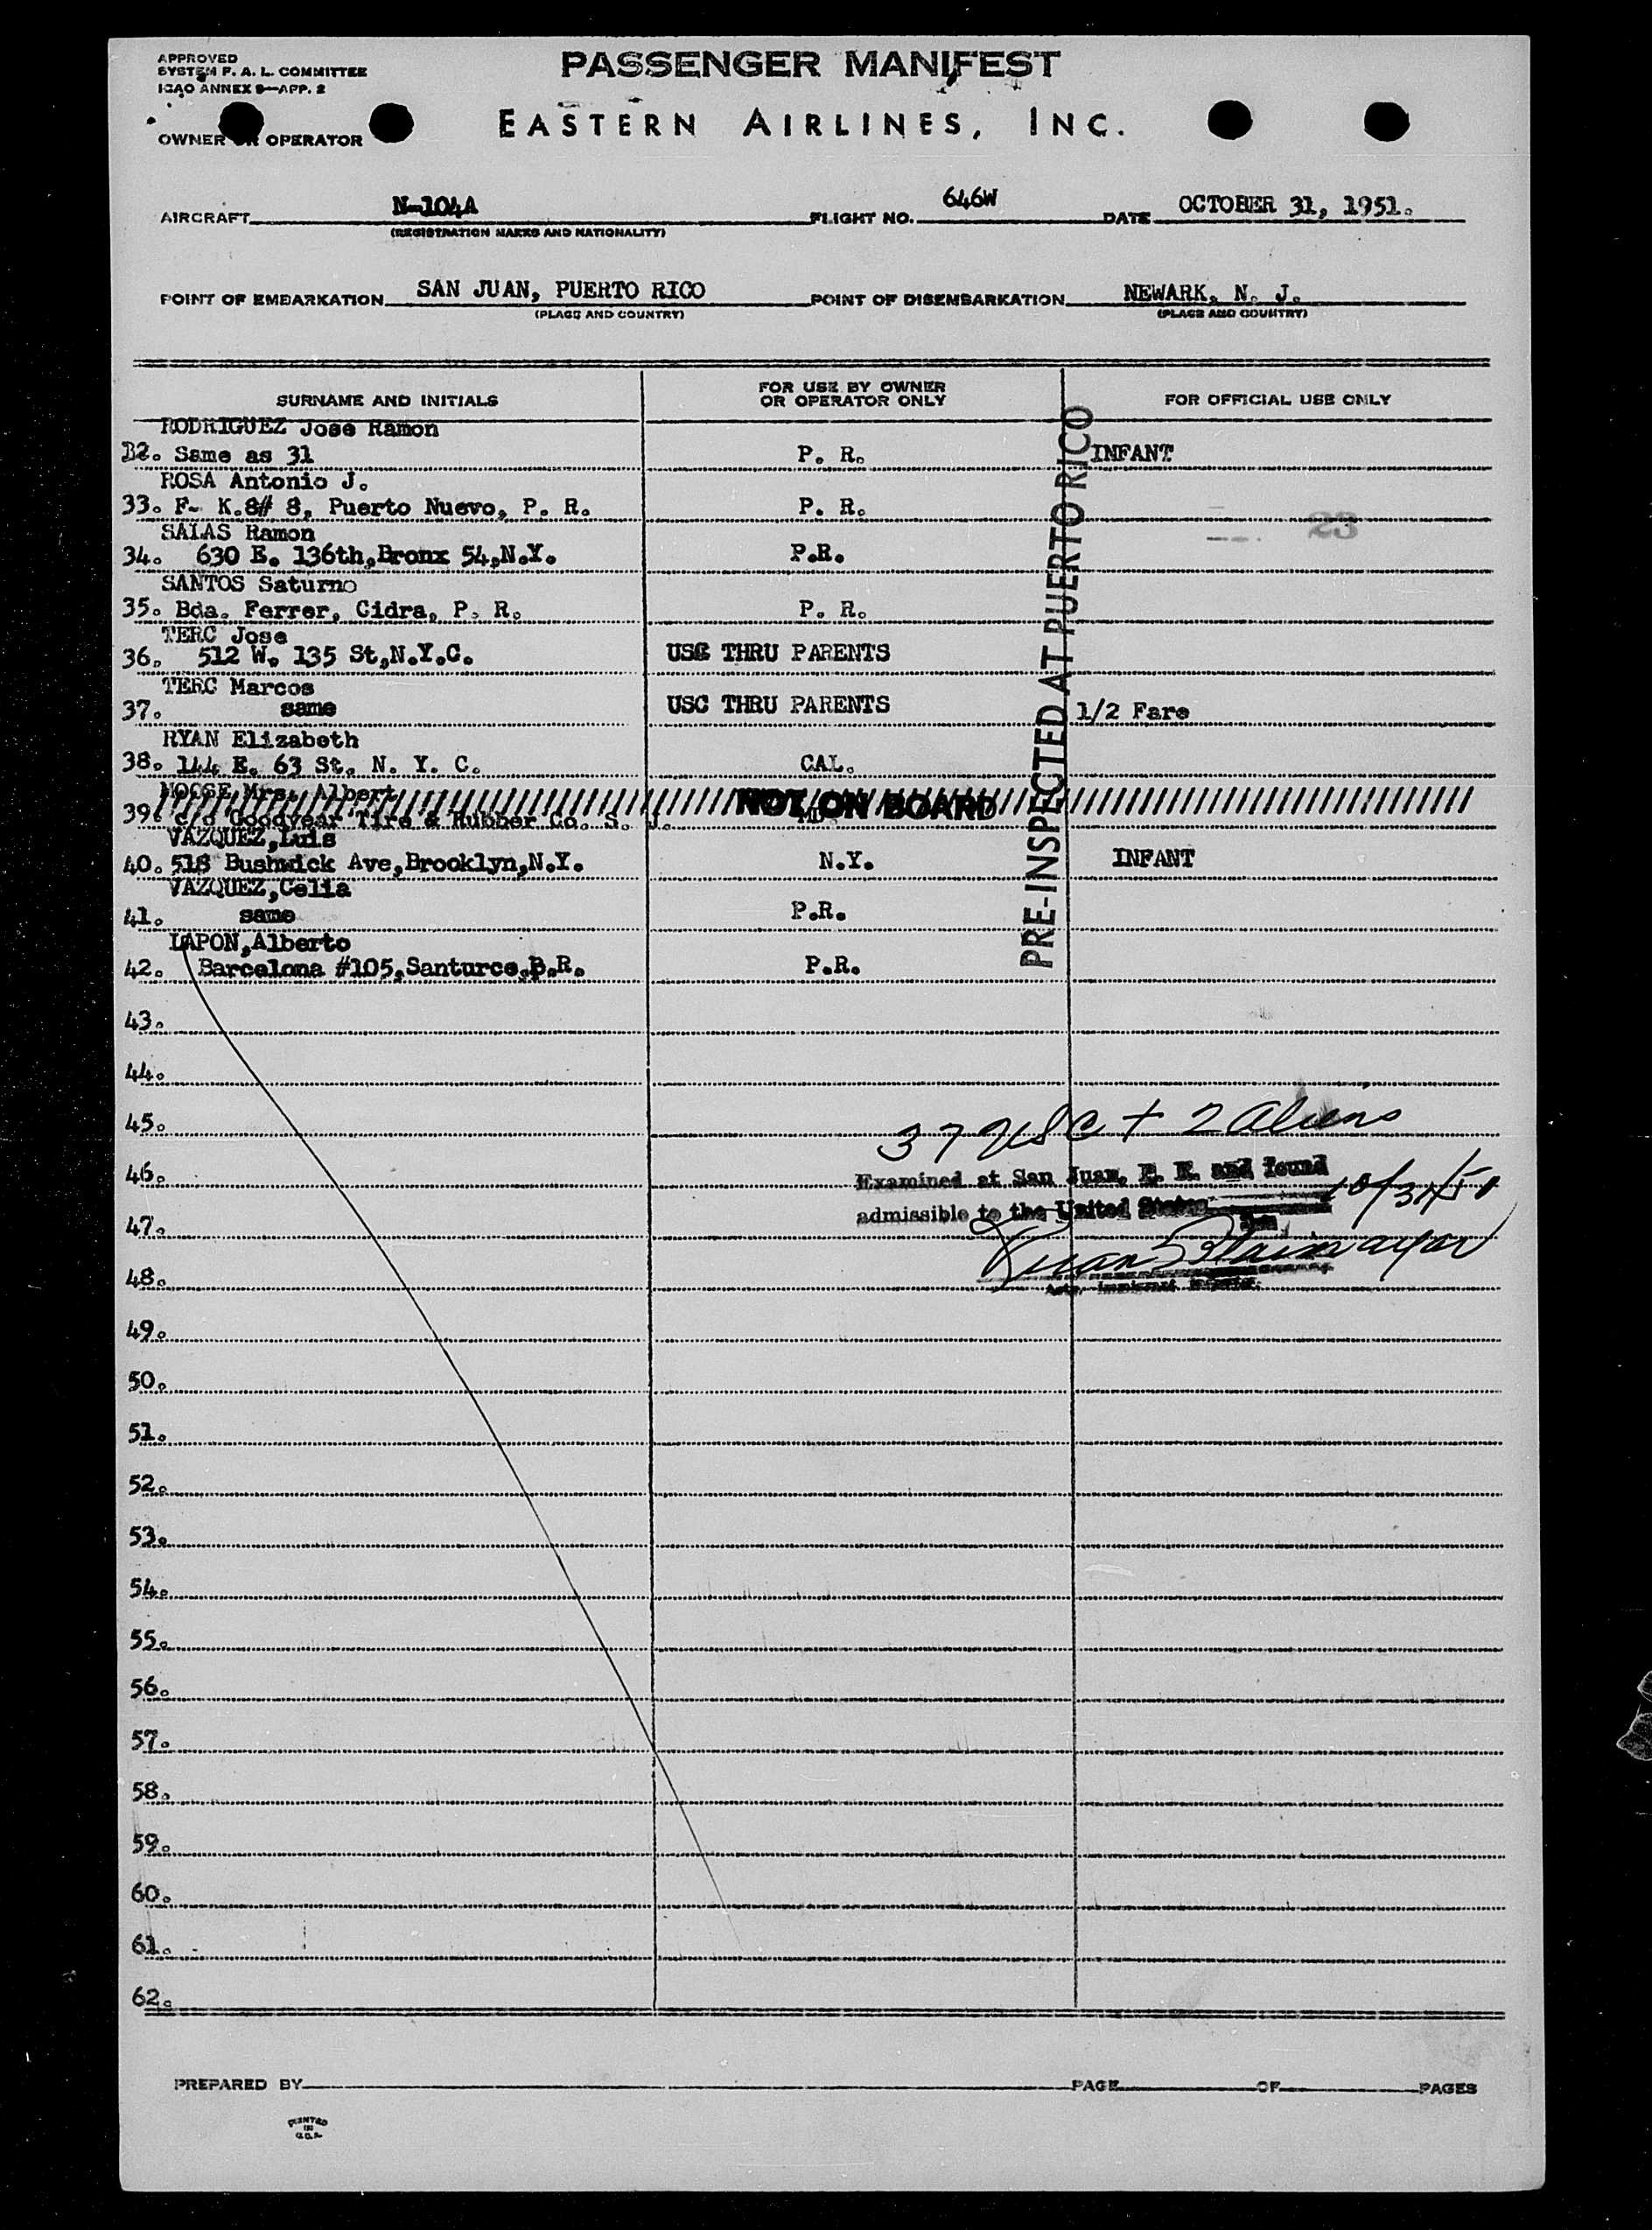 APPROVED
SYSTEM F. A. L. COMMITTEE
ICAO ANNEX 9—APP. 2
PASSENGER MANIFEST
EASTERN AIRLINES, INC.
OWNER OR OPERATOR
AIRCRAFT N-104A FLIGHT NO. 646W DATE OCTOBER 31, 1951.
(REGISTRATION MARKS AND NATIONALITY)
POINT OF EMBARKATION SAN JUAN, PUERTO RICO POINT OF DISEMBARKATION NEWARK, N. J.
(PLACE AND COUNTRY) (PLACE AND COUNTRY)
SURNAME AND INITIALS FOR USE BY OWNER OR OPERATOR ONLY FOR OFFICIAL USE ONLY
RODRIGUEZ Jose Ramon
32. Same as 31 P. R. INFANT
ROSA Antonio J.
33. F- K.8# 8, Puerto Nuevo, P. R. P. R.
23
SALAS Ramon
34. 630 E. 136th,Bronx 54,N.Y. P.R.
SANTOS Saturno
35. Bda. Ferrer, Cidra, P. R. P. R.
TERC Jose
36. 512 W. 135 St,N.Y.C. USC THRU PARENTS
TERC Marcos
37. same USC THRU PARENTS 1/2 Fare
RYAN Elizabeth
38. 144 E. 63 St. N. Y. C. CAL.
MOOSE Mrs. Albert
NOT ON BOARD
39. c/o Goodyear Tire & Rubber Co. S. J.
VAZQUEZ,Luis
40. 518 Bushwick Ave,Brooklyn,N.Y. N.Y. INFANT
VAZQUEZ,Celia
41. same P.R.
LAPON,Alberto
42. Barcelona #105,Santurce,P.R. P.R.
PRE-INSPECTED AT PUERTO RICO
43.
44.
45.
37 USC + 2 Aliens
46.
Examined at San Juan, P. R. and found
10/31/51
admissible to the United States
47.
48.
49.
50.
51.
52.
53.
54.
55.
56.
57.
58.
59.
60.
61.
62.
PREPARED BY PAGE OF PAGES
PRINTED
IN
U.S.A.